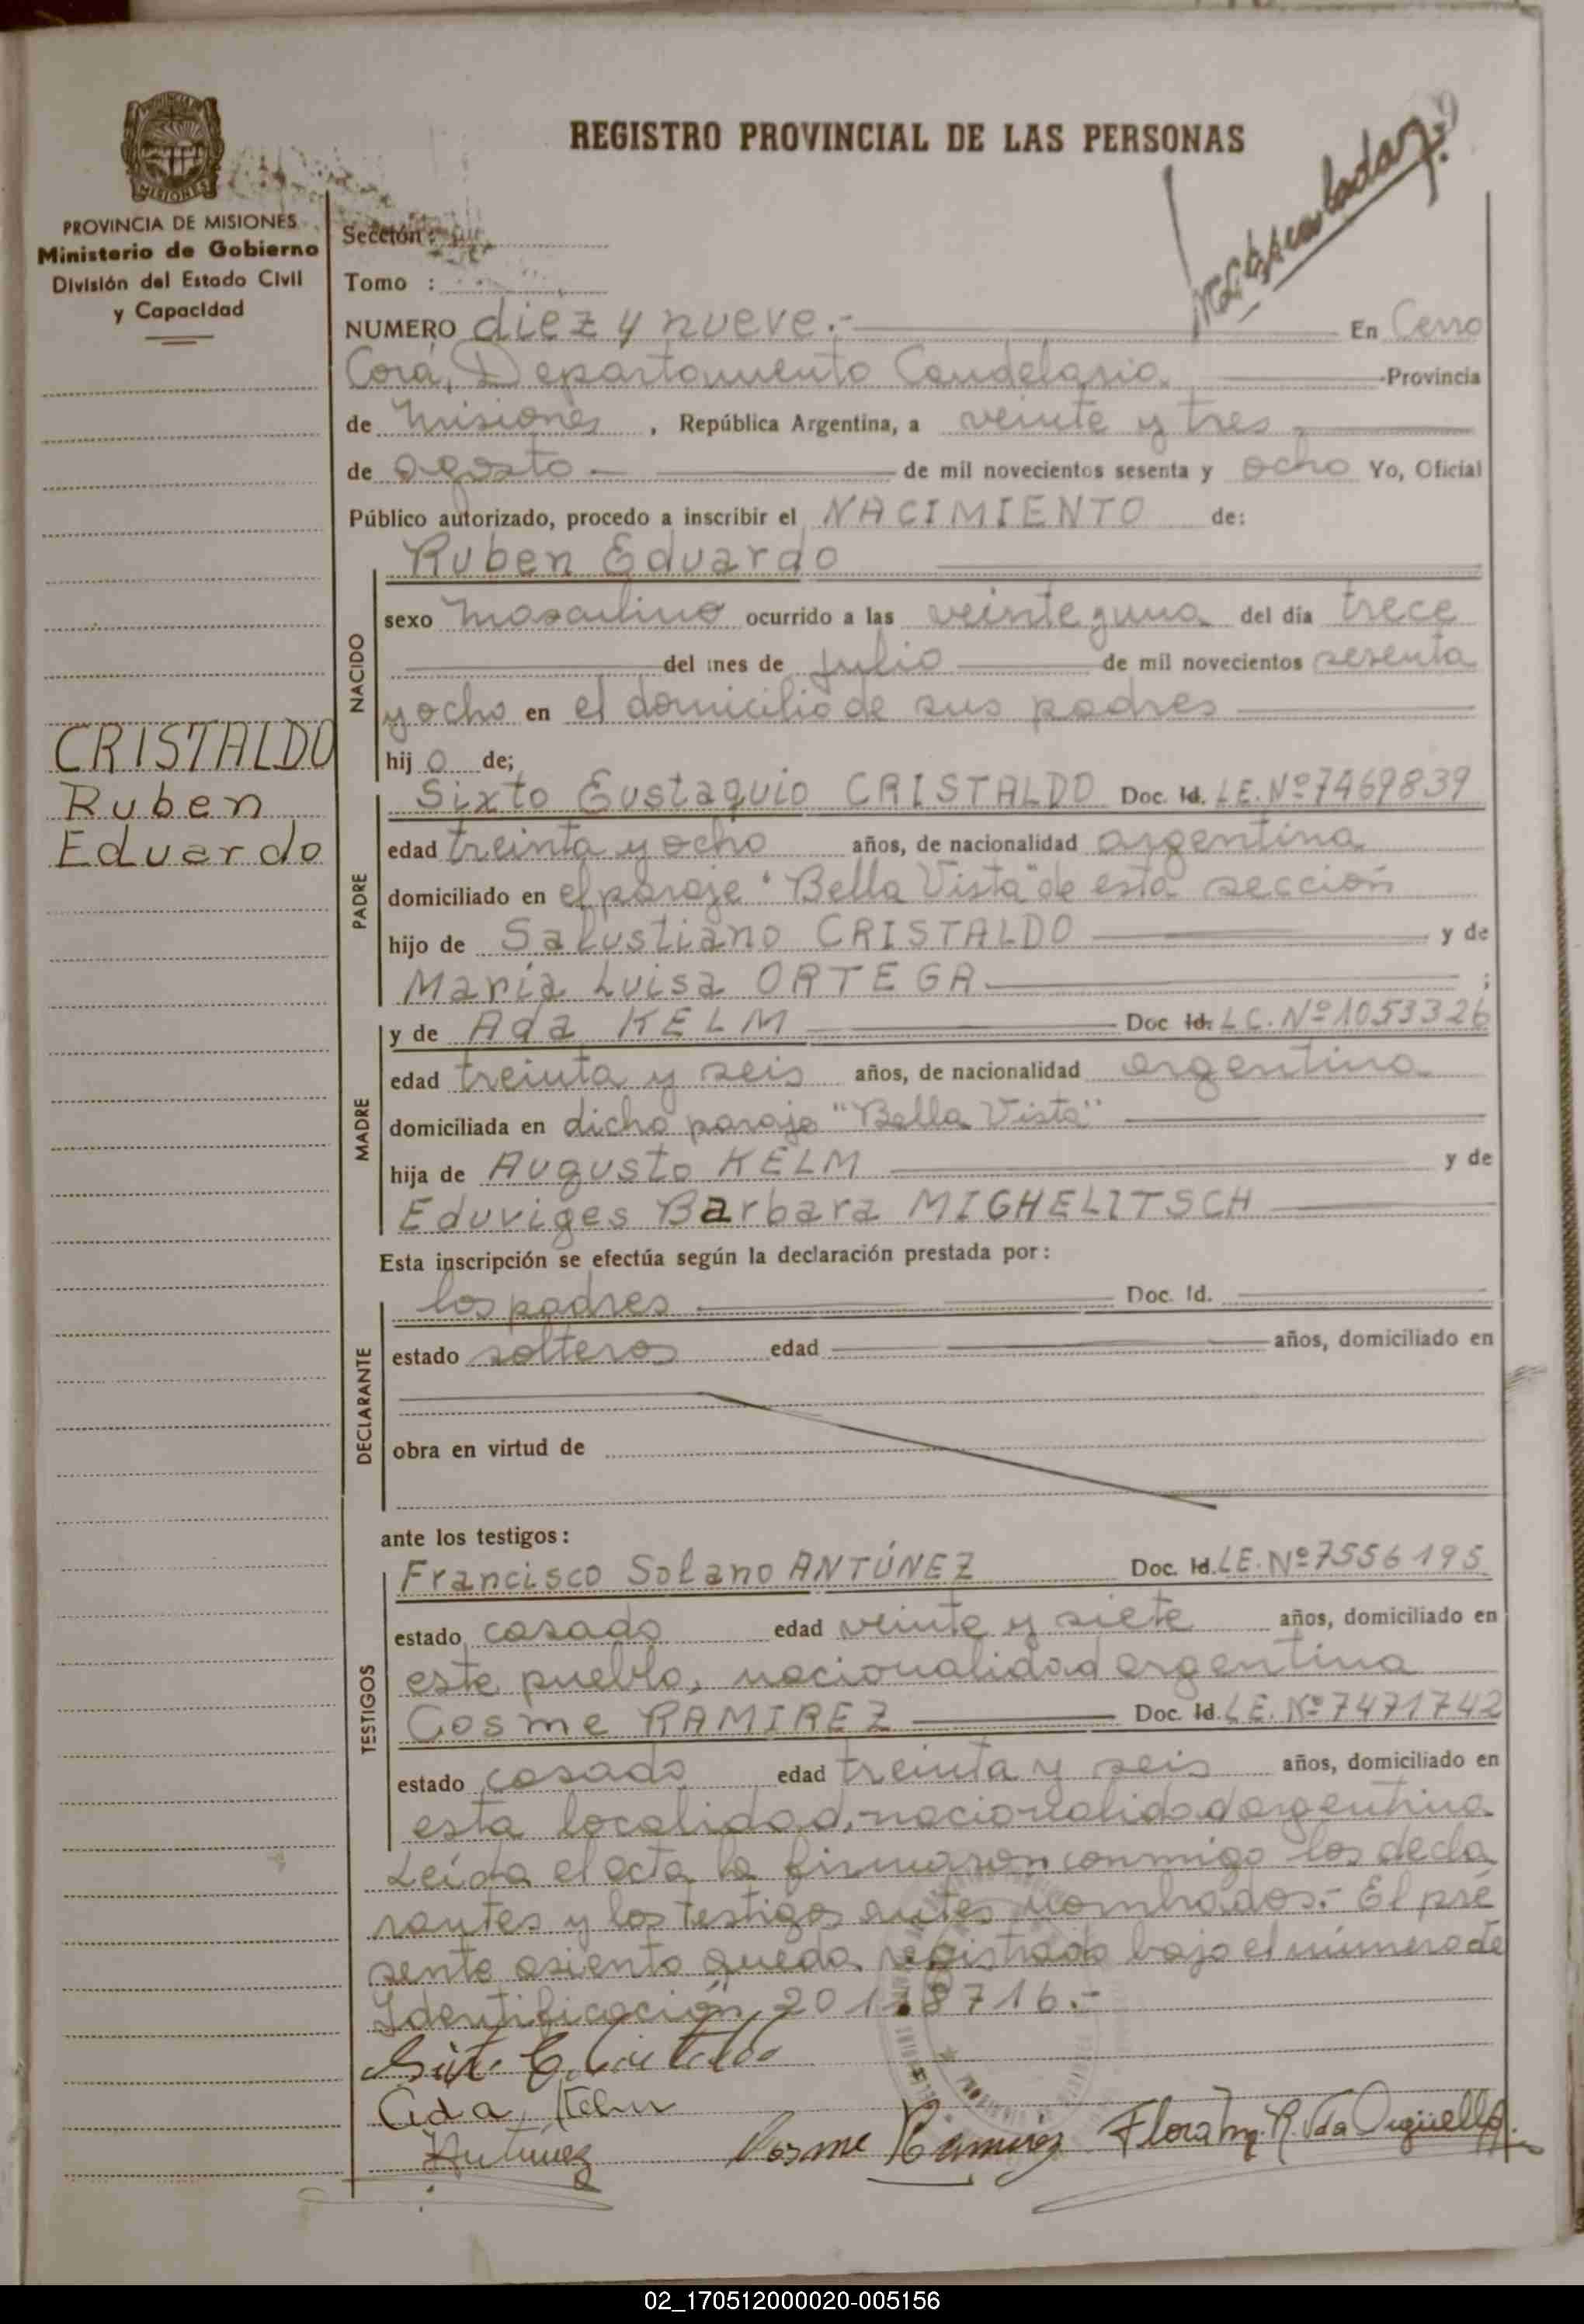 REGISTRO PROVINCIAL DE LAS PERSONAS
PROVINCIA DE MISIONES
Ministerio de Gobierno
División del Estado Civil
y Capacidad
Sección :
Tomo :
NUMERO diez y nueve.- En Cerro
Corá, Departamento Candelaria Provincia
de Misiones , República Argentina, a veinte y tres
de agosto de mil novecientos sesenta y ocho Yo, Oficial
Público autorizado, procedo a inscribir el NACIMIENTO de:
NACIDO
Ruben Eduardo
sexo masculino ocurrido a las veinte y una del día trece
del mes de julio de mil novecientos sesenta
y ocho en el domicilio de sus padres
hijo de;
CRISTALDO
Ruben
Eduardo
PADRE
Sixto Eustaquio CRISTALDO Doc. Id. L.E. Nº 7469839
edad treinta y ocho años, de nacionalidad argentina
domiciliado en el paraje "Bella Vista" de esta sección
hijo de Salustiano CRISTALDO y de
María Luisa ORTEGA ;
MADRE
y de Ada KELM Doc Id. L.C. Nº 1053326
edad treinta y seis años, de nacionalidad argentina
domiciliada en dicho paraje "Bella Vista"
hija de Augusto KELM y de
Eduviges Barbara MIGHELITSCH
Esta inscripción se efectúa según la declaración prestada por:
DECLARANTE
los padres Doc. Id.
estado solteros edad años, domiciliado en
obra en virtud de
ante los testigos:
TESTIGOS
Francisco Solano ANTÚNEZ Doc. Id. L.E. Nº 7556195
estado casado edad veinte y siete años, domiciliado en
este pueblo, nacionalidad argentina
Cosme RAMIREZ Doc. Id. L.E. Nº 7471742
estado casado edad treinta y seis años, domiciliado en
esta localidad, nacionalidad argentina
Leída el acta la firmaron conmigo los decla
rantes y los testigos antes nombrados.- El pre
sente asiento queda registrado bajo el número de
Identificación 20118716.-
Ada Kelm
Antúnez
Cosme Ramirez Flora M. R. Vda Argüello
02_170512000020-005156